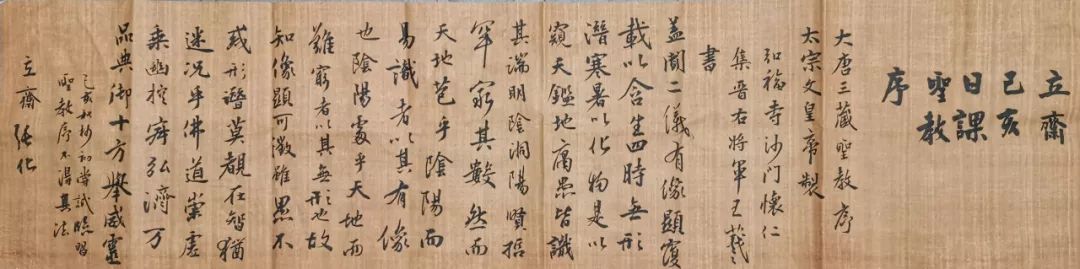 立齋
己亥
日課
聖教
序
大唐三藏聖教序
太宗文皇帝製
弘福寺沙門懷仁
集晉右將軍王羲之
書
蓋聞二儀有像顯覆
載以含生四時無形
潛寒暑以化物是以
窺天鑑地庸愚皆識
其端明陰洞陽賢哲
罕窮其數然而
天地苞乎陰陽而
易識者以其有像
也陰陽處乎天地而
難窮者以其無形也故
知像顯可徵雖愚不
惑形潛莫覩在智猶
迷況乎佛道崇虛
乘幽控寂弘濟萬
品典御十方舉威靈
己亥秋杪初嘗試臨習
聖教序不得其法
立齋張化